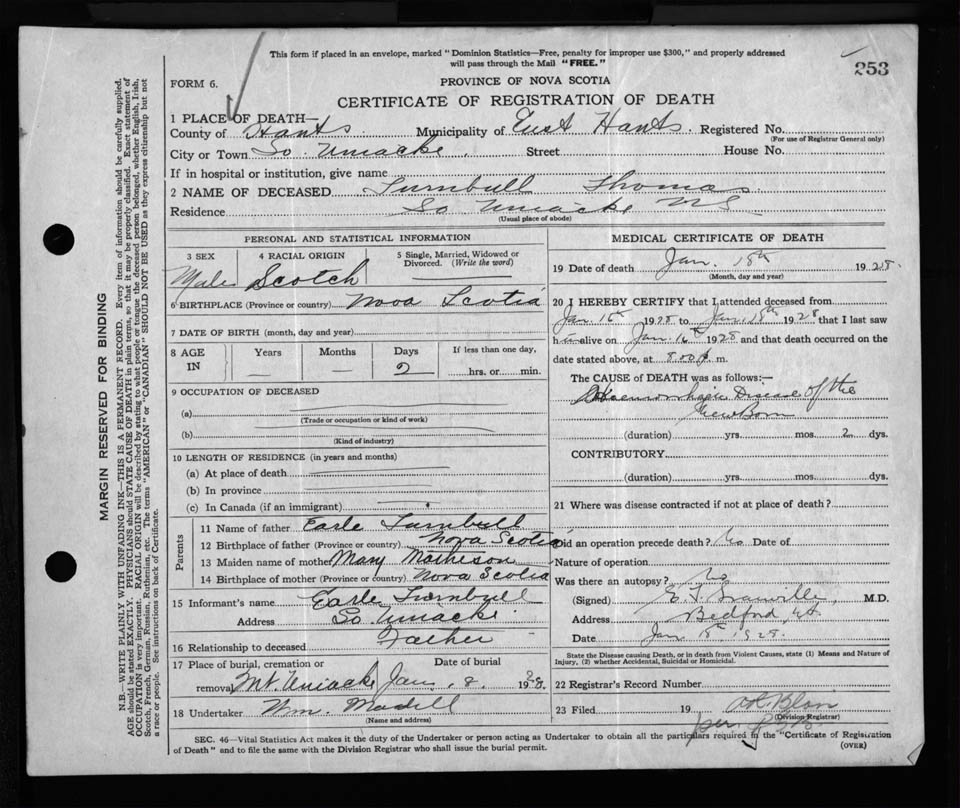 This form if placed in an envelope, marked "Dominion Statistics—Free, penalty for improper use $300," and properly addressed
will pass through the Mail "FREE."
253
FORM 6.
PROVINCE OF NOVA SCOTIA
CERTIFICATE OF REGISTRATION OF DEATH
1 PLACE OF DEATH—
County of Hants Municipality of East Hants Registered No.
(For use of Registrar General only)
City or Town So Uniacke Street House No.
If in hospital or institution, give name
2 NAME OF DECEASED Turnbull Thomas
Residence So Uniacke NS
(Usual place of abode)
PERSONAL AND STATISTICAL INFORMATION
3 SEX 4 RACIAL ORIGIN 5 Single, Married, Widowed or Divorced. (Write the word)
Male Scotch
6 BIRTHPLACE (Province or country) Nova Scotia
7 DATE OF BIRTH (month, day and year)
8 AGE IN Years Months Days If less than one day,
— — 2 hrs. or min.
9 OCCUPATION OF DECEASED
(a)
(Trade or occupation or kind of work)
(b)
(Kind of industry)
10 LENGTH OF RESIDENCE (in years and months)
(a) At place of death
(b) In province
(c) In Canada (if an immigrant)
Parents
11 Name of father Earle Turnbull
12 Birthplace of father (Province or country) Nova Scotia
13 Maiden name of mother Mary Matheson
14 Birthplace of mother (Province or country) Nova Scotia
15 Informant's name Earle Turnbull
Address So Uniacke
16 Relationship to deceased Father
17 Place of burial, cremation or Date of burial
removal Mt. Uniacke Jan, 8, 1928
18 Undertaker Wm. Madill
(Name and address)
MEDICAL CERTIFICATE OF DEATH
19 Date of death Jan. 18th 1928.
(Month, day and year)
20 I HEREBY CERTIFY that I attended deceased from
Jan. 16th 1928 to Jan. 18th 1928 that I last saw
h im alive on Jan. 16th 1928 and that death occurred on the
date stated above, at 8.00 p. m.
The CAUSE of DEATH was as follows:—
Haemorrhagic Disease of the
New Born
(duration) yrs. mos. 2 dys.
CONTRIBUTORY
(duration) yrs. mos. dys.
21 Where was disease contracted if not at place of death?
Did an operation precede death? No Date of
Nature of operation
Was there an autopsy? No
(Signed) E. T. Granville, M.D.
Address Bedford,
Date Jan 18th 1928.
State the Disease causing Death, or in death from Violent Causes, state (1) Means and Nature of
Injury, (2) whether Accidental, Suicidal or Homicidal.
22 Registrar's Record Number
23 Filed 19
(Division Registrar)
per
SEC. 46—Vital Statistics Act makes it the duty of the Undertaker or person acting as Undertaker to obtain all the particulars required in the "Certificate of Registration
of Death" and to file the same with the Division Registrar who shall issue the burial permit.
(OVER)
MARGIN RESERVED FOR BINDING
N.B.—WRITE PLAINLY WITH UNFADING INK—THIS IS A PERMANENT RECORD. Every item of information should be carefully supplied.
AGE should be stated EXACTLY. PHYSICIANS should STATE CAUSE OF DEATH in plain terms, so that it may be properly classified. Exact statement of
OCCUPATION is very important. RACIAL ORIGIN will be described by stating to what people or tongue the deceased person belonged, whether English, Irish,
Scotch, French, German, Russian, Ruthenian, etc. The terms "AMERICAN" or "CANADIAN" SHOULD NOT BE USED as they express citizenship but not
a race or people. See instructions on back of Certificate.